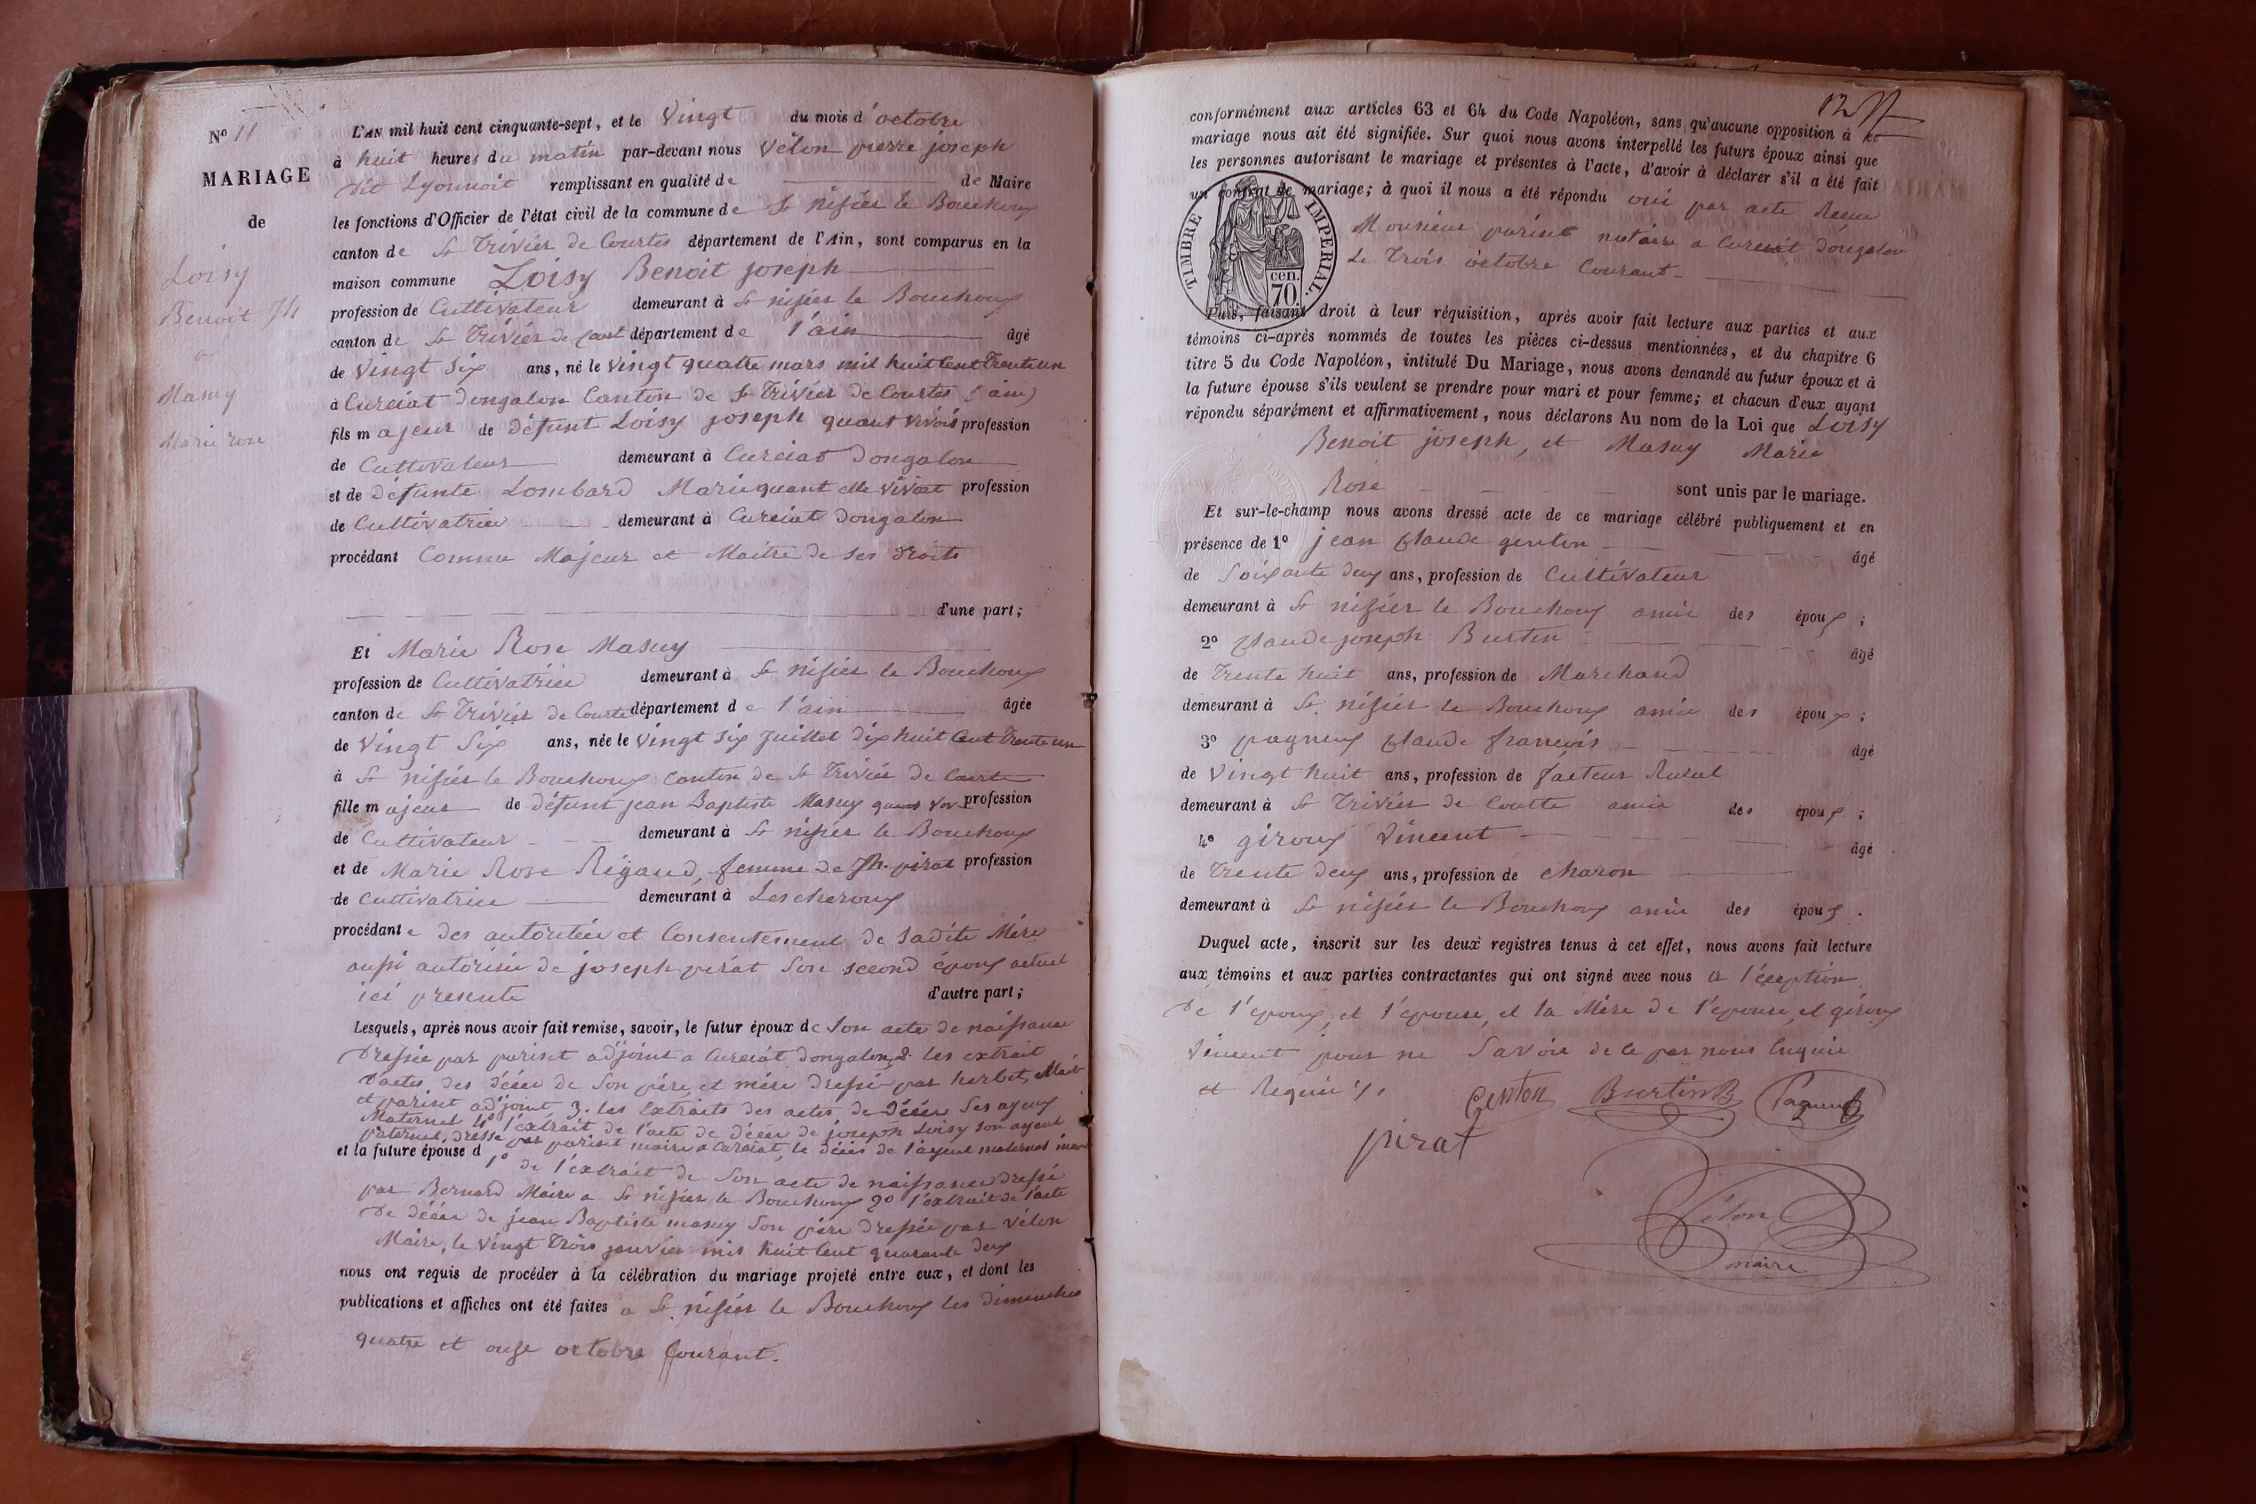 N° 11
MARIAGE
de
Loisy
Benoit Jh
a
Masuy
Marie rose
L'AN mil huit cent cinquante-sept, et le Vingt du mois d'octobre
à huit heures du matin par-devant nous Vélon pierre joseph
dit Lyonnoit remplissant en qualité de de Maire
les fonctions d'Officier de l'état civil de la commune de St nisier le Bouchoux
canton de St Trivier de Courtes département de l'Ain, sont comparus en la
maison commune Loisy Benoit joseph
profession de Cultivateur demeurant à St nisier le Bouchoux
canton de St Trivier de Court département de l'ain âgé
de Vingt Six ans, né le Vingt quatre mars mil huit Cent Trente un
à Curciat Dongalon Canton de St Trivier de Courtes (ain)
fils majeur de défunt Loisy joseph quant vivois profession
de Cultivateur demeurant à Curciat Dongalon
et de défunte Lombard Marie quant elle vivoit profession
de Cultivatrice demeurant à Curciat Dongalon
procédant Comme Majeur et Maitre de ses droits
d'une part;
Et Marie Rose Masuy
profession de Cultivatrice demeurant à St nisier le Bouchoux
canton de St Trivier de Courte département de l'ain âgée
de Vingt Six ans, née le Vingt six juillet dix huit Cent Trente un
à St nisier le Bouchoux Canton de St Trivier de Courte
fille majeur de défunt jean Baptiste Masuy quant viv profession
de Cultivateur demeurant à St nisier le Bouchoux
et de Marie Rose Rigaud, femme de Jh. pirat profession
de Cultivatrice demeurant à Lescheroux
procédante des autoritée et Consentement de Sadite Mère
aussi autorisée de joseph pirat Son second époux actuel
ici presente d'autre part;
Lesquels, après nous avoir fait remise, savoir, le futur époux de Son acte de naissance
Dressée par pariset adjoint a Curciat Dongalon, 2. les extrait
d'actes des décée de Son père et mère dressé par herbet Maire
et pariset adjoint 3. les Extraits des actes de décée Ses ayeux
Maternel 4° l'extrait de l'acte de décée de joseph Loisy son ayeul
paternel, dressé par pariset maire a Curciat, le décès de l'ayeul maternel
et la future épouse d 1° de l'extrait de Son acte de naissance dressé
par Bernard Maire a St nisier le Bouchoux 2° l'extrait de l'acte
de décée de jean Baptiste masuy Son père dressée par Vélon
Maire, le Vingt Trois janvier mis huit Cent quarante deux
nous ont requis de procéder à la célébration du mariage projeté entre eux, et dont les
publications et affiches ont été faites a St nisier le Bouchoux les dimanches
quatre et onze octobre Courant.
12
conformément aux articles 63 et 64 du Code Napoléon, sans qu'aucune opposition à ce
mariage nous ait été signifiée. Sur quoi nous avons interpellé les futurs époux ainsi que
les personnes autorisant le mariage et présentes à l'acte, d'avoir à déclarer s'il a été fait
un contrat de mariage; à quoi il nous a été répondu oui par acte Recu
Monsieur pariset notaire a Curciat Dongalon
Le Trois octobre Courant
TIMBRE IMPERIAL.
cen.
70.
Puis, faisant droit à leur réquisition, après avoir fait lecture aux parties et aux
témoins ci-après nommés de toutes les pièces ci-dessus mentionnées, et du chapitre 6
titre 5 du Code Napoléon, intitulé Du Mariage, nous avons demandé au futur époux et à
la future épouse s'ils veulent se prendre pour mari et pour femme; et chacun d'eux ayant
répondu séparément et affirmativement, nous déclarons Au nom de la Loi que Loisy
Benoit joseph, et Masuy Marie
Rose sont unis par le mariage.
Et sur-le-champ nous avons dressé acte de ce mariage célébré publiquement et en
présence de 1° jean Claude genton âgé
de Soixante deux ans, profession de Cultivateur
demeurant à St nisier le Bouchoux amie des époux ;
2° Claude joseph Burtin âgé
de Trente huit ans, profession de Marchand
demeurant à St. nisier le Bouchoux amie des époux ;
3° pagneux Claude françois âgé
de Vingt huit ans, profession de facteur Rural
demeurant à St Trivier de Courtte amie des époux ;
4° giroux Vincent âgé
de Trente deux ans, profession de charon
demeurant à St nisier le Bouchoux amie des époux .
Duquel acte, inscrit sur les deux registres tenus à cet effet, nous avons fait lecture
aux témoins et aux parties contractantes qui ont signé avec nous a l'éxeption
de l'époux, et l'épouse, et la Mère de l'épouse, et giroux
Vincent pour ne Savoir de ce par nous Enquie
et Requie
Genton Burtin Pagneux
pirat
Vélon
maire